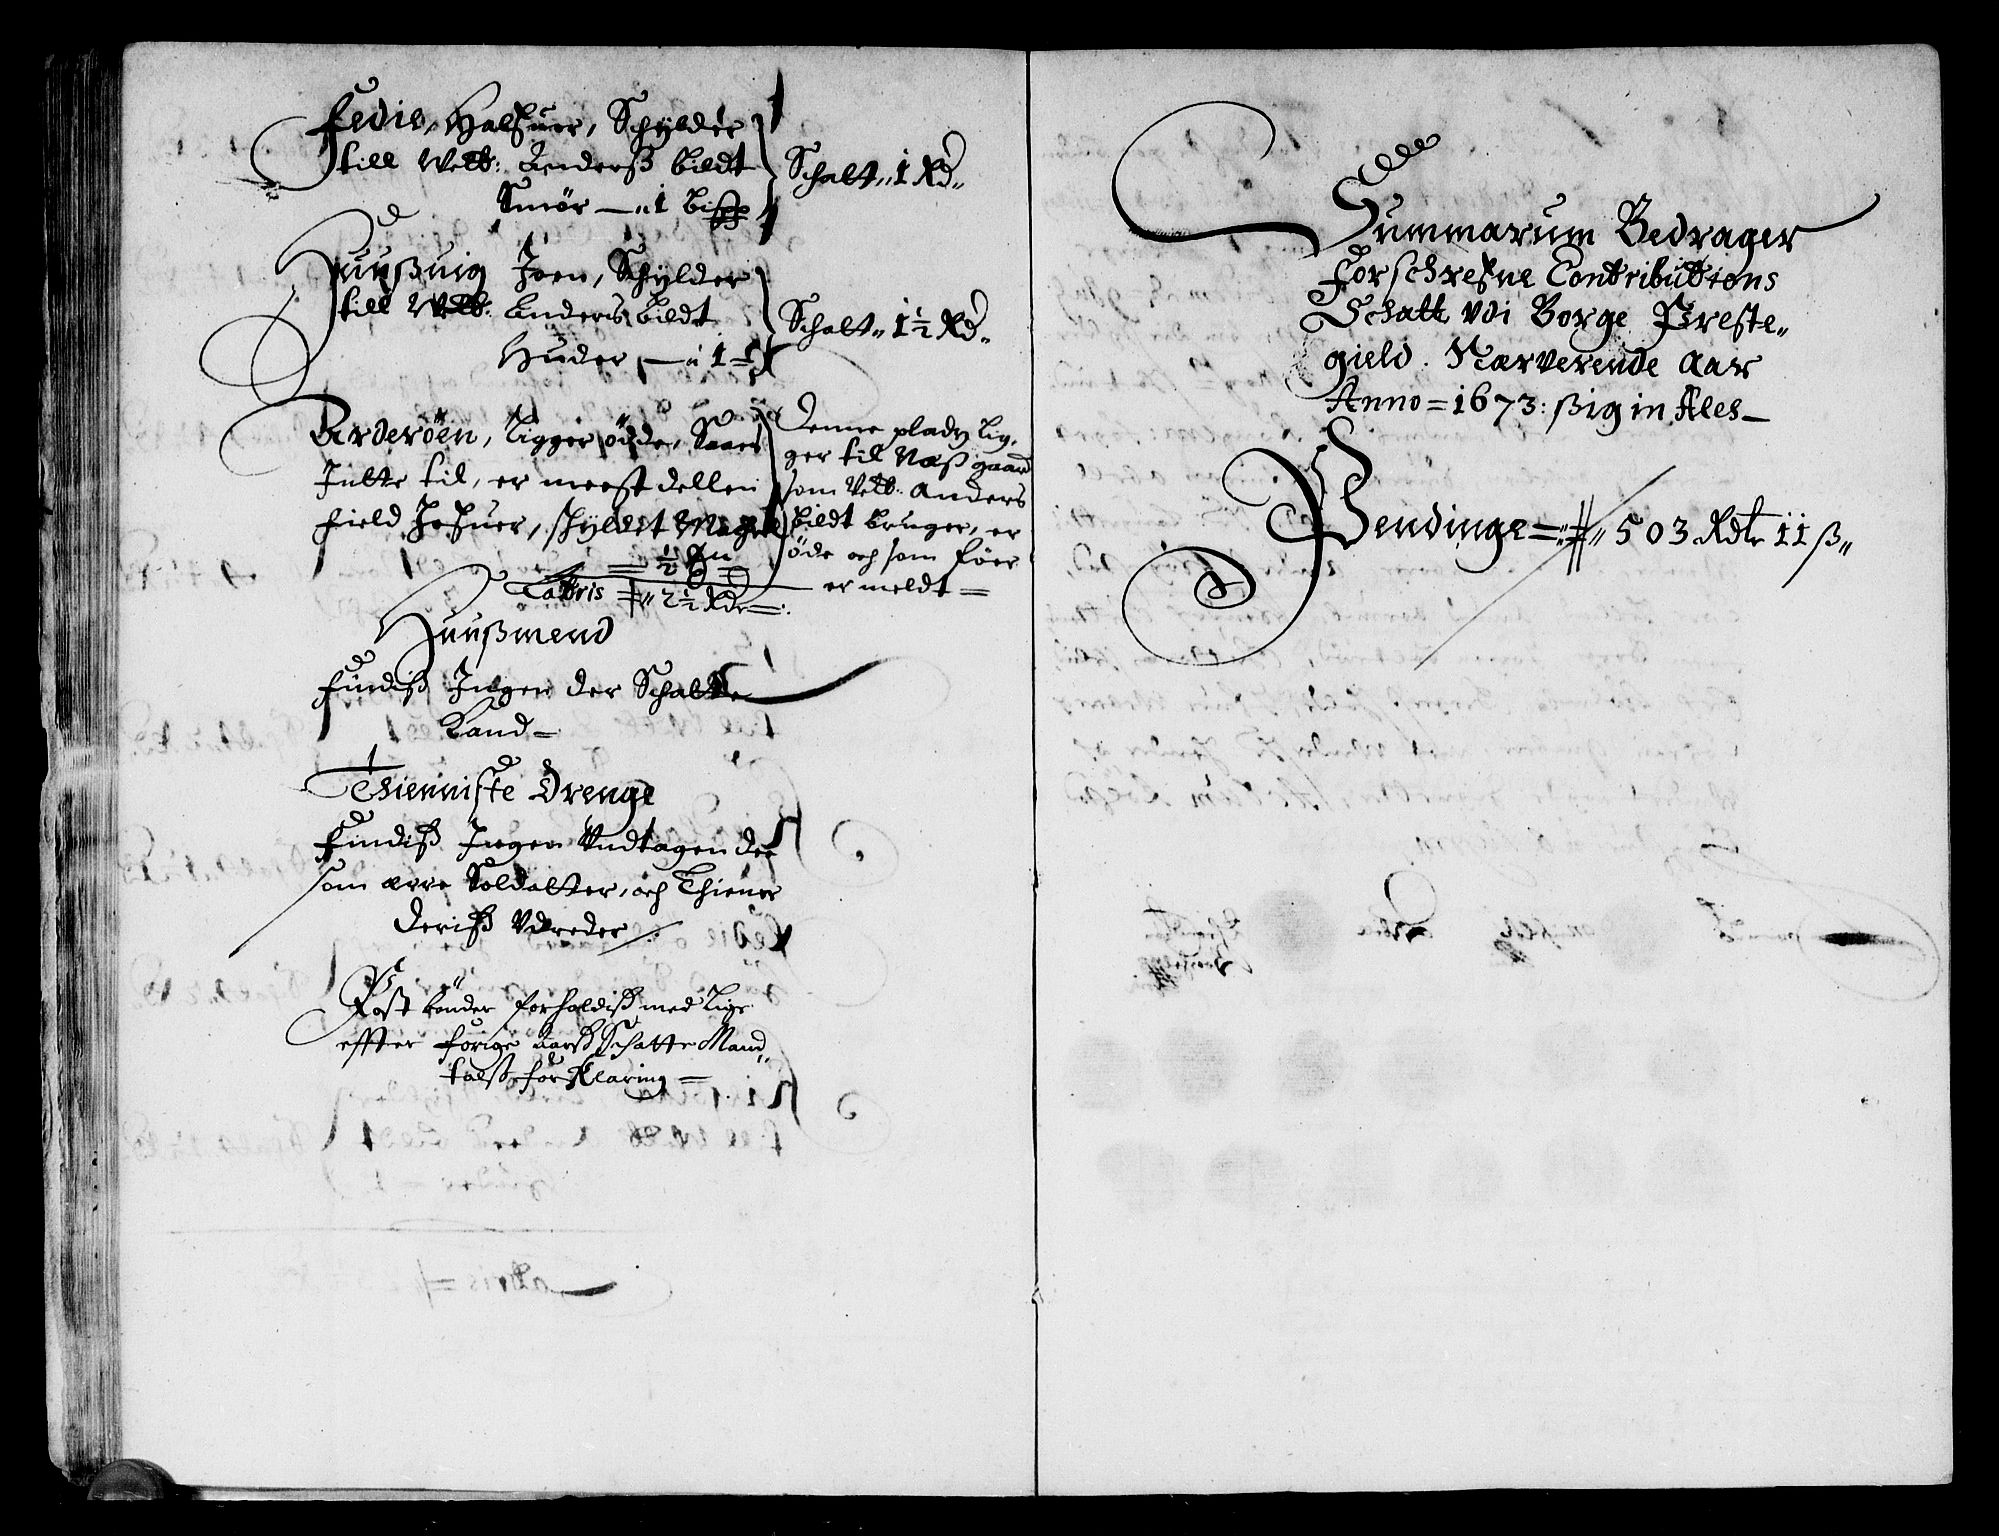 Fedie, Halfuor, Schylder
till Welb: Anderß bildt
Smör — „ 1 bißp
Schatt „ 1 Rd „
Huußuig Joen, Schylder
till Welb: Anders bildt
Huder — „ 1 =
Schatt „ 1 ½ Rd „
Arderöen, Ligger öde, Saaes
Intte til, er meest dellen
field Jofuer, schyldet
= ½ =
Denne pladtz Lig„
ger til Næß gaard
som Velb: Anders
bildt bruger, er
öde och som föer
er meldt =
Latteris = „ 2 ½ Rdr =
Huußmend
findiß Ingen der Schatte
Kand =
Thienniste Drenge
Findiß Ingen Undtagen de
som ære Soldatter, och Thiener
deriß
Post bönder forholdiß med Lige
effter forige aarß Schatte Mand„
talß forKlaring =
Summarum Bedrager
forschrefne Contributions
Schatt Vdi Borge Preste„
gield. Nærverende Aar
Anno = 1673: ßig in Ales —
Pendinge = „ 503 Rdlr 11 ß „